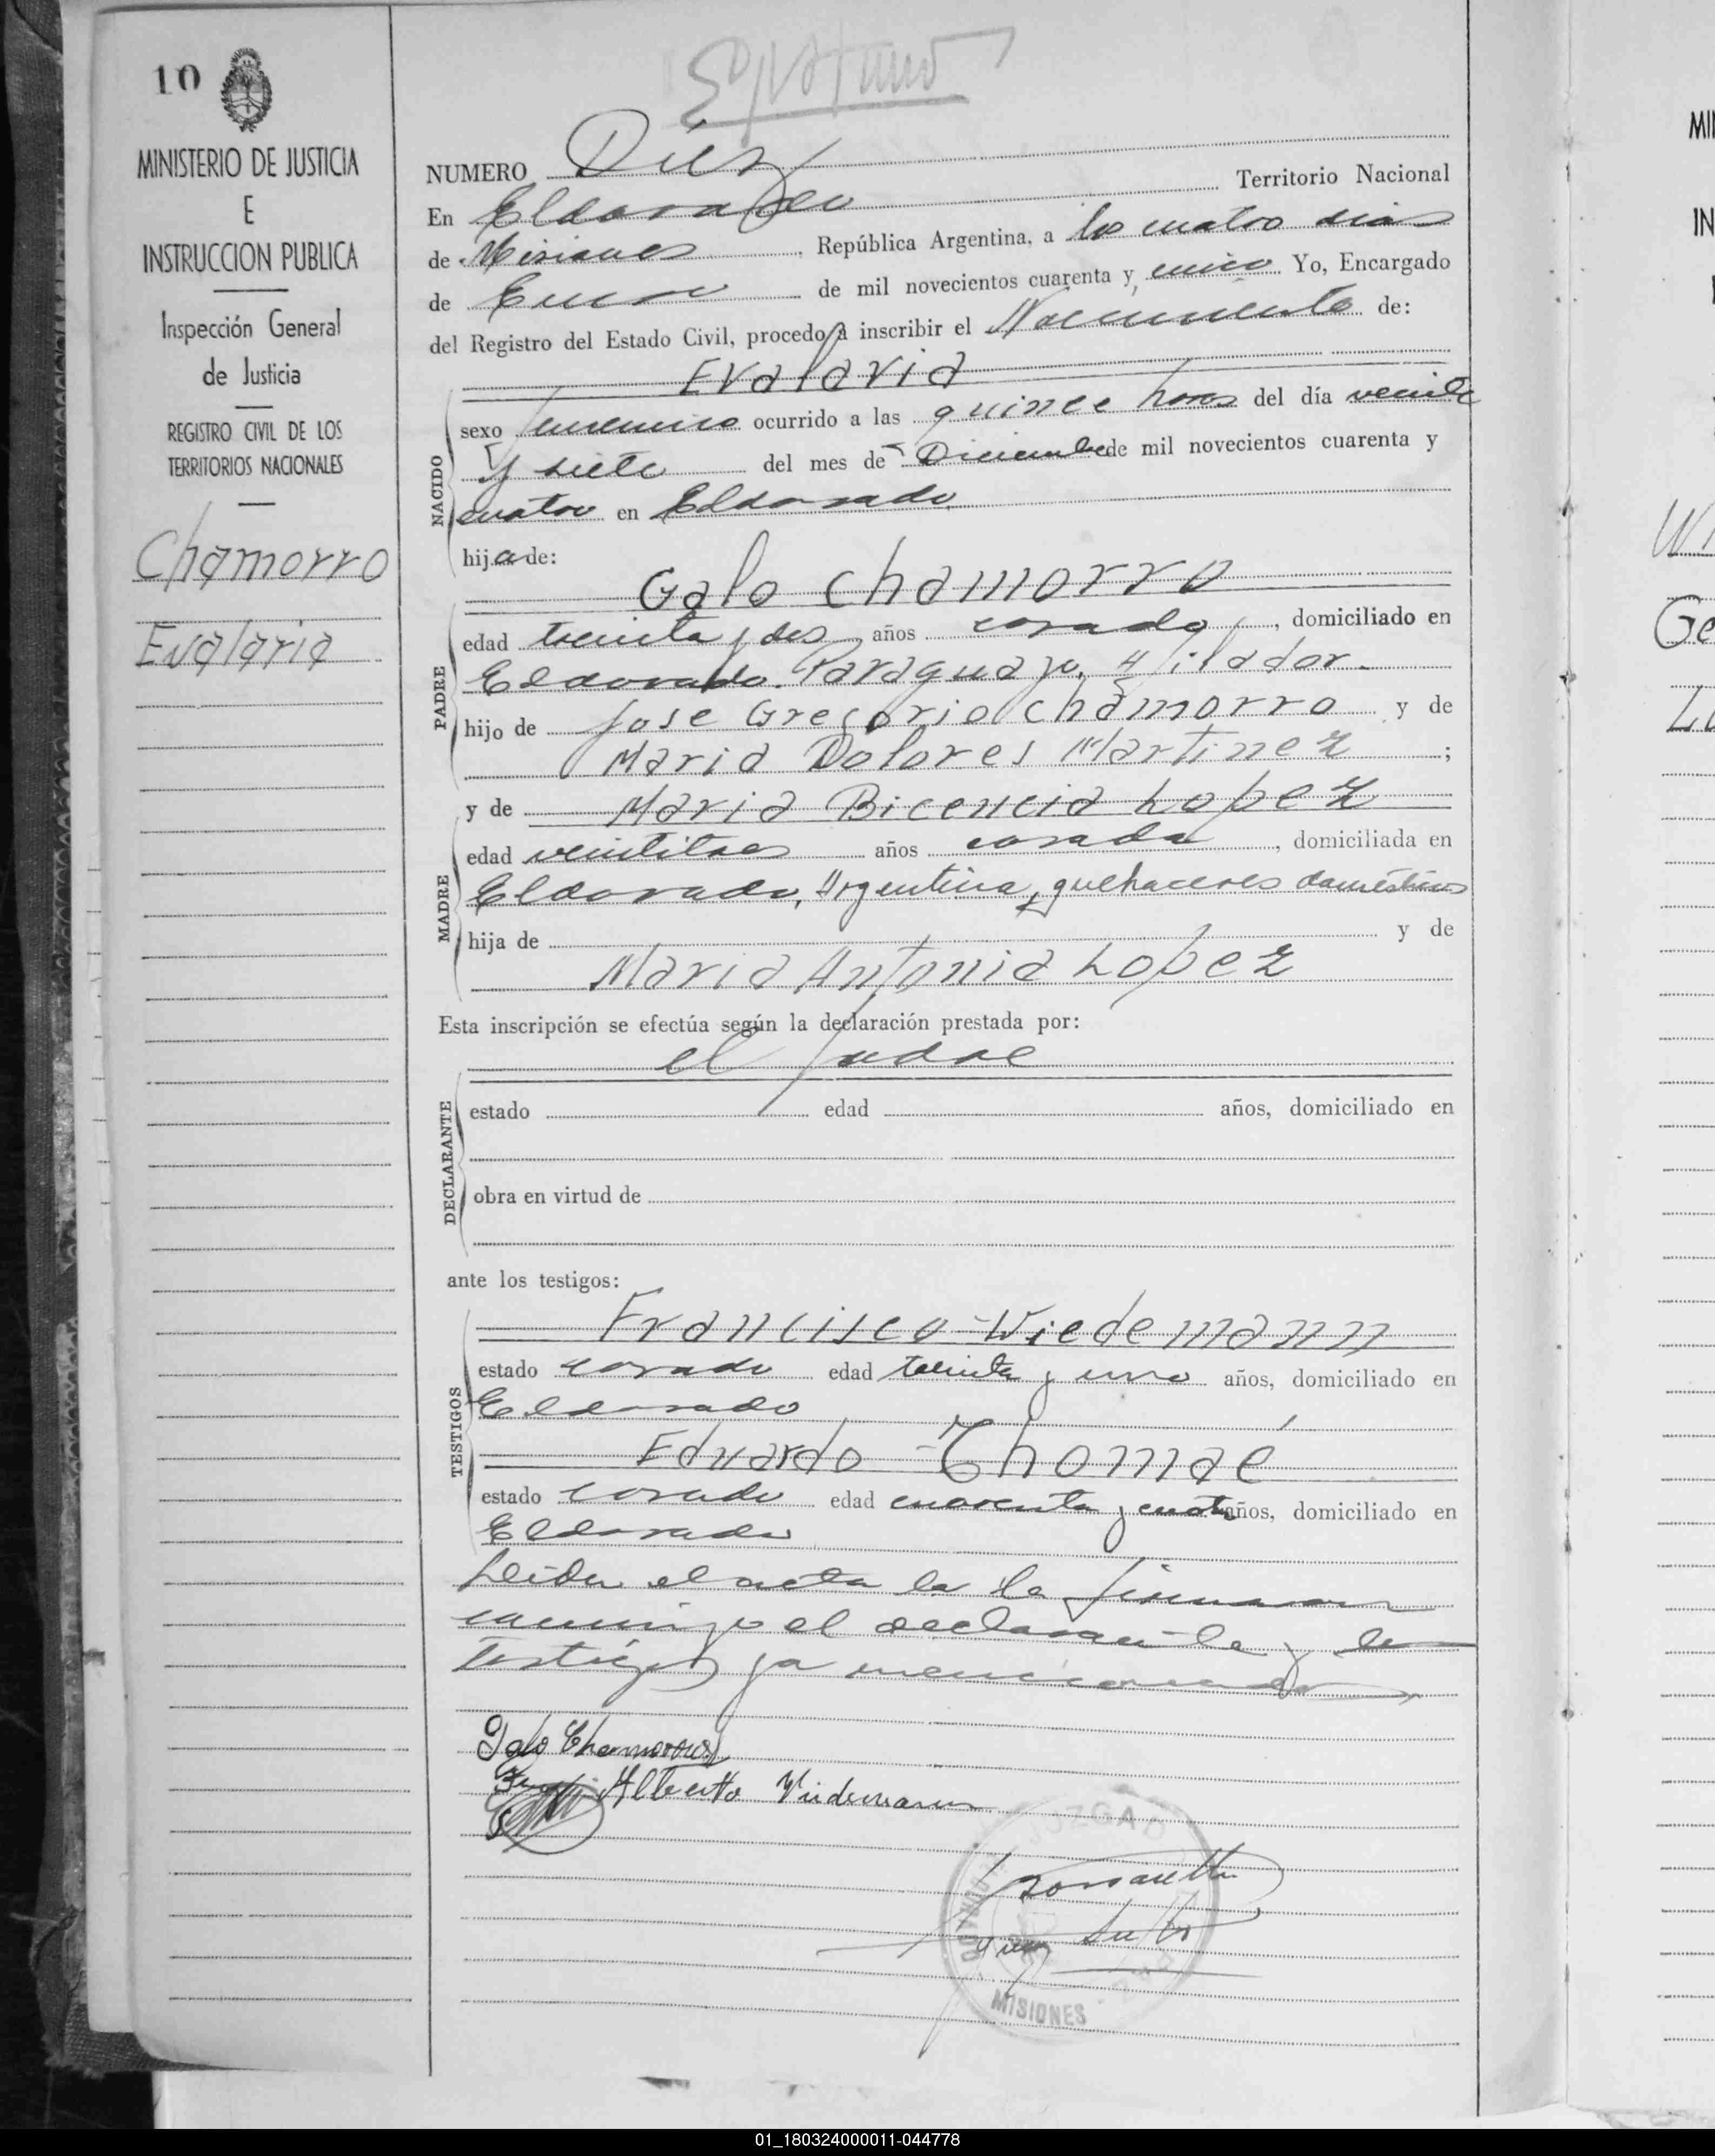 10
MINISTERIO DE JUSTICIA
E
INSTRUCCION PUBLICA
Inspección General
de Justicia
REGISTRO CIVIL DE LOS
TERRITORIOS NACIONALES
Chamorro
Evalaria
NUMERO Diez
En Eldorado Territorio Nacional
de Misiones, República Argentina, a los cuatro dias
de Enero de mil novecientos cuarenta y cinco Yo, Encargado
del Registro del Estado Civil, procedo a inscribir el Nacimiento de:
Evalaria
NACIDO
sexo femenino ocurrido a las quince horas del día veinte
y siete del mes de Diciembre de mil novecientos cuarenta y
cuatro en Eldorado
hija de:
Galo Chamorro
PADRE
edad treinta y dos años casado, domiciliado en
Eldorado. Paraguayo, Hilador.
hijo de Jose Gregorio Chamorro y de
Maria Dolores Martinez;
y de Maria Bicencia Lopez
MADRE
edad veintitres años casada, domiciliada en
Eldorado, Argentina, quehaceres domésticos
hija de y de
Maria Antonia Lopez
Esta inscripción se efectúa según la declaración prestada por:
el padre
DECLARANTE
estado edad años, domiciliado en
obra en virtud de
ante los testigos:
Francisco Wiedemann
TESTIGOS
estado casado edad treinta y uno años, domiciliado en
Eldorado
Eduardo Thomaé
estado casado edad cuarenta y cuatro años, domiciliado en
Eldorado
Leida el acta la firmaron
conmigo el declarante y los
testigos ya mencionados
Galo Chamorro
Alberto Wiedemann
JUZGADO
MISIONES
MI
IN
W
Ge
01_180324000011-044778